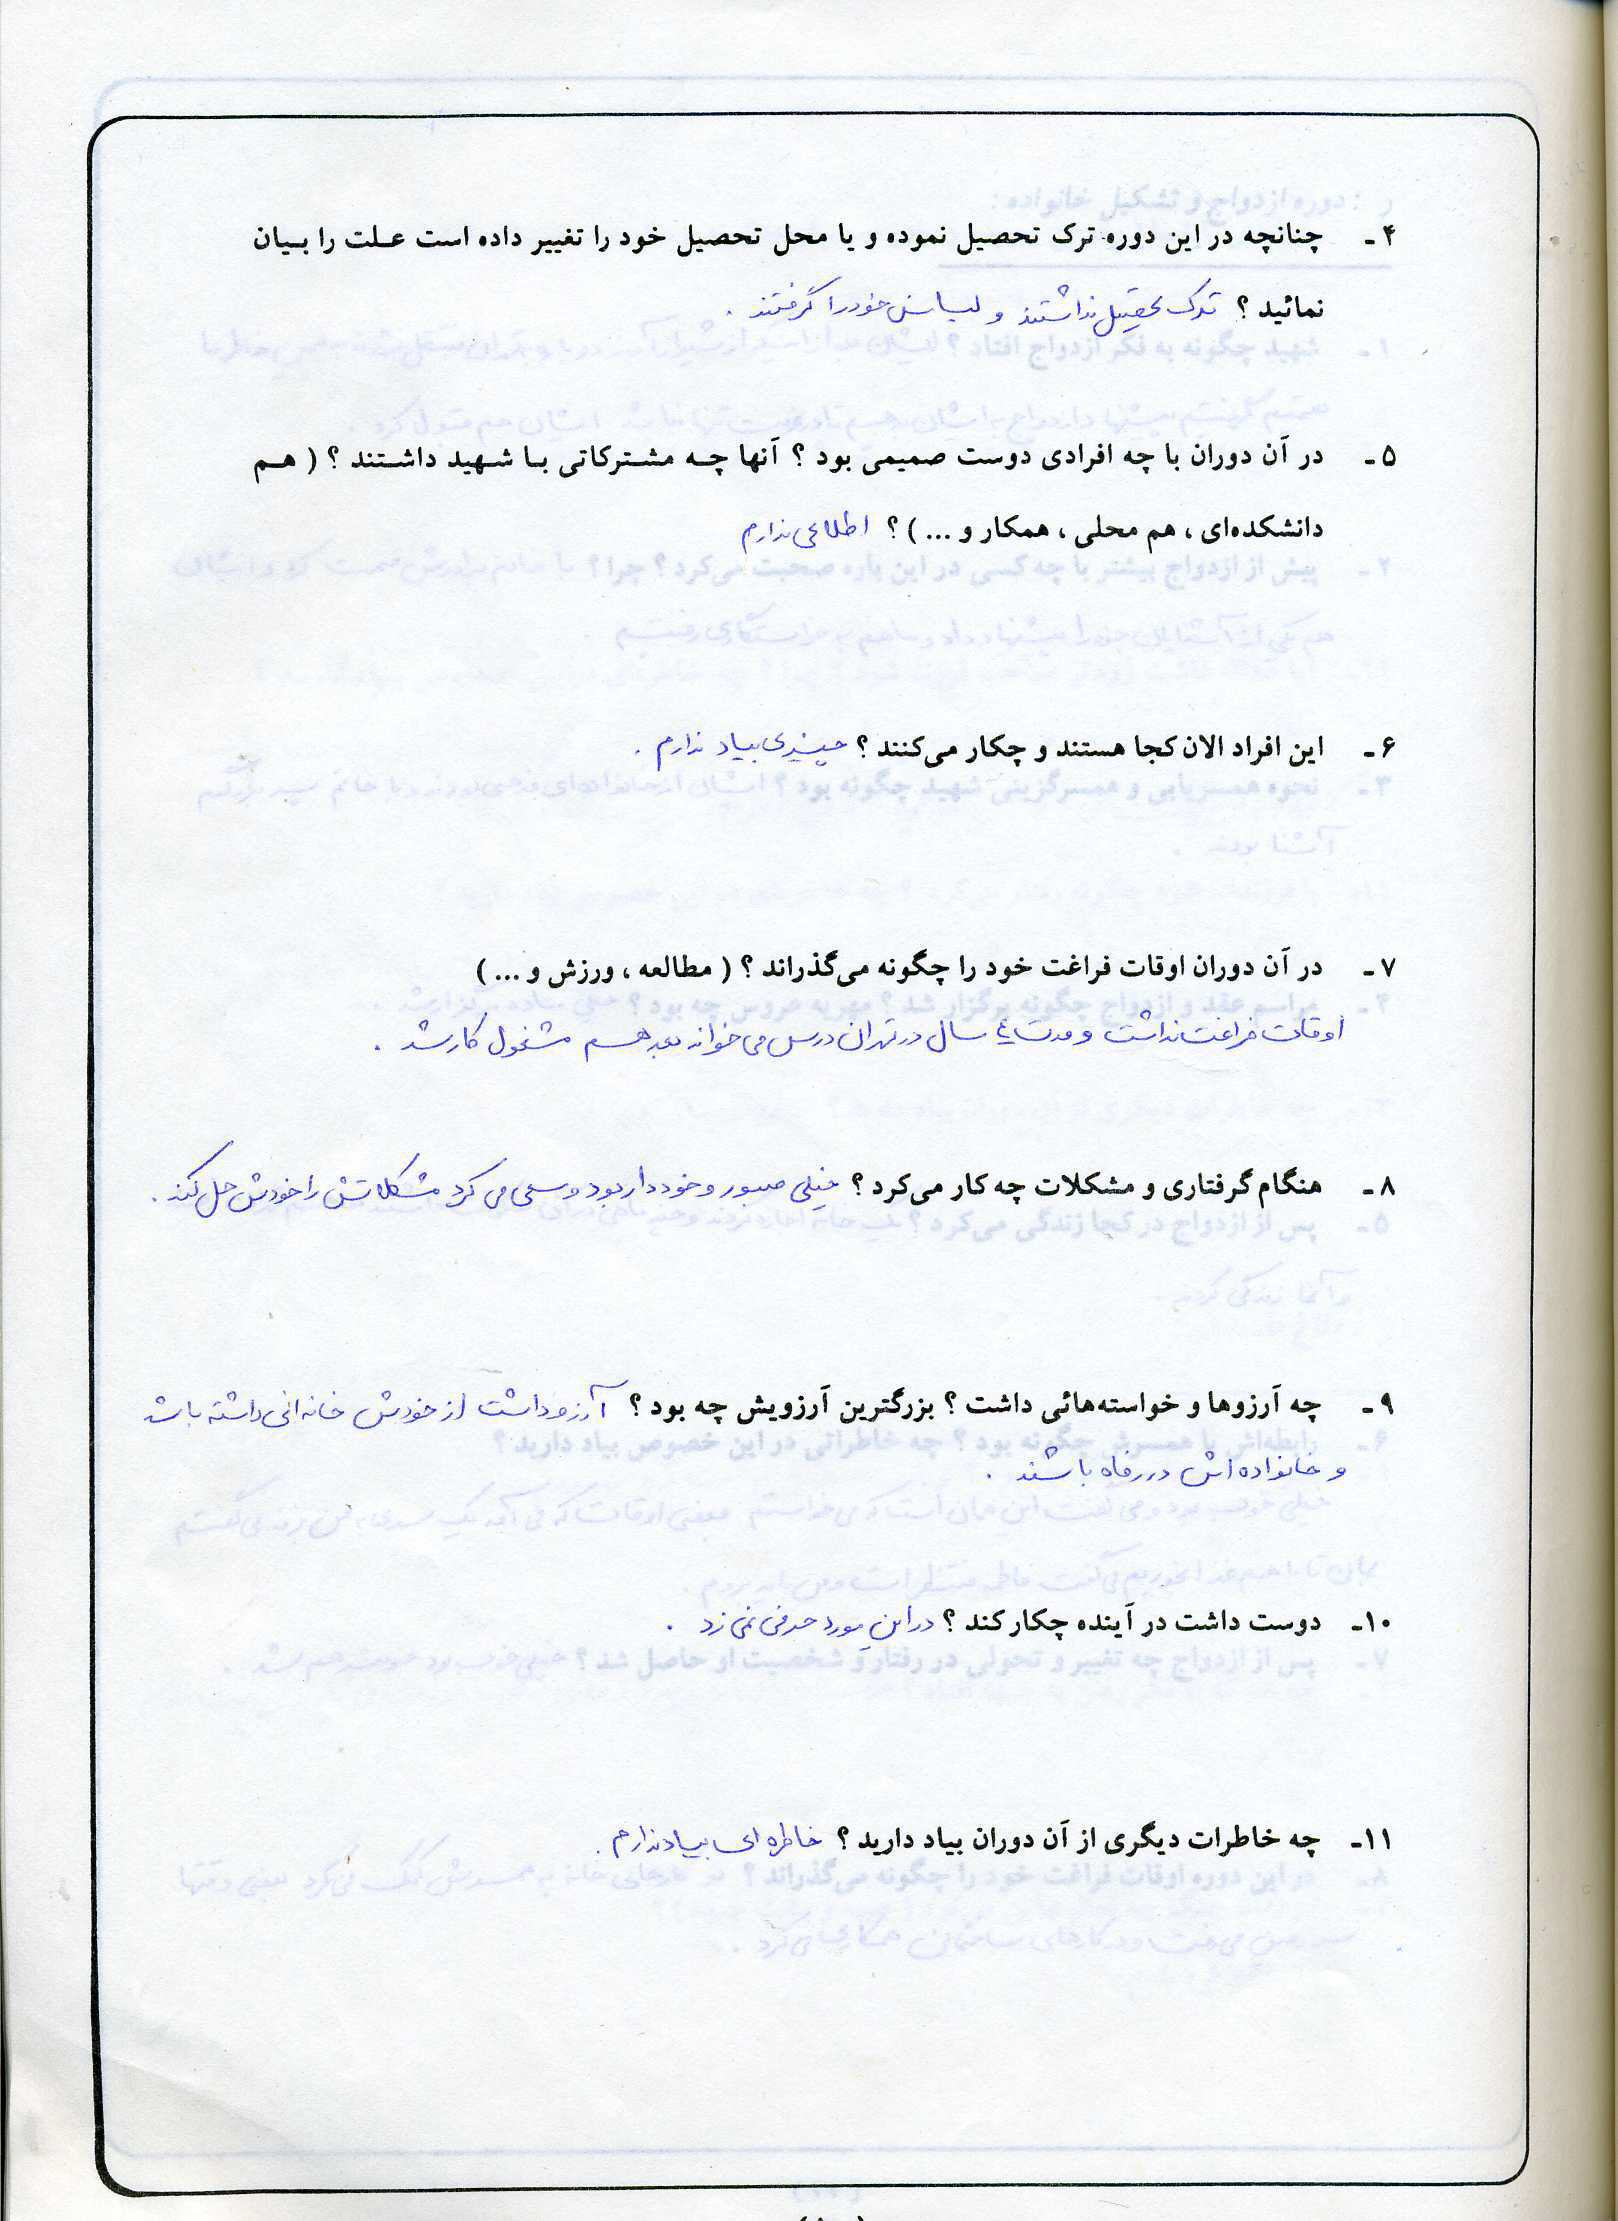 ۴ـ چنانچه در این دوره ترک تحصیل نموده و یا محل تحصیل خود را تغییر داده است علت را بیان
نمائید ؟ ترک تحصیل نداشتند و لیسانس خود را گرفتند .
۵ـ در آن دوران با چه افرادی دوست صمیمی بود ؟ آنها چه مشترکاتی با شهید داشتند ؟ ( هم
دانشکده‌ای ، هم محلی ، همکار و ... ) ؟ اطلاعی ندارم
۶ـ این افراد الان کجا هستند و چکار می‌کنند ؟ چیزی بیاد ندارم .
۷ـ در آن دوران اوقات فراغت خود را چگونه می‌گذراند ؟ ( مطالعه ، ورزش و ... )
اوقات فراغت نداشت و مدت ٤ سال در تهران درس می خواند بعد هم مشغول کار شد .
۸ـ هنگام گرفتاری و مشکلات چه کار می‌کرد ؟ خیلی صبور و خوددار بود و سعی می کرد مشکلاتش را خودش حل کند .
۹ـ چه آرزوها و خواسته‌هائی داشت ؟ بزرگترین آرزویش چه بود ؟ آرزو داشت از خودش خانه ائی داشته باشد
و خانواده اش در رفاه باشند .
۱۰ـ دوست داشت در آینده چکار کند ؟ در این مورد حرفی نمی زد .
۱۱ـ چه خاطرات دیگری از آن دوران بیاد دارید ؟ خاطره ای بیاد ندارم .